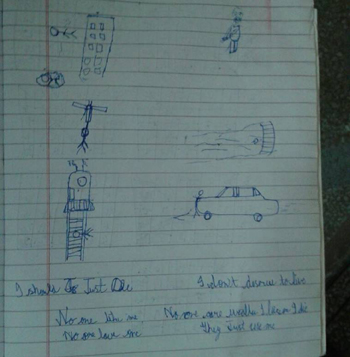 I should Just Die
I don't deserve to live
No one like me
No one love me
No one care weather I live or I die
They Just use me